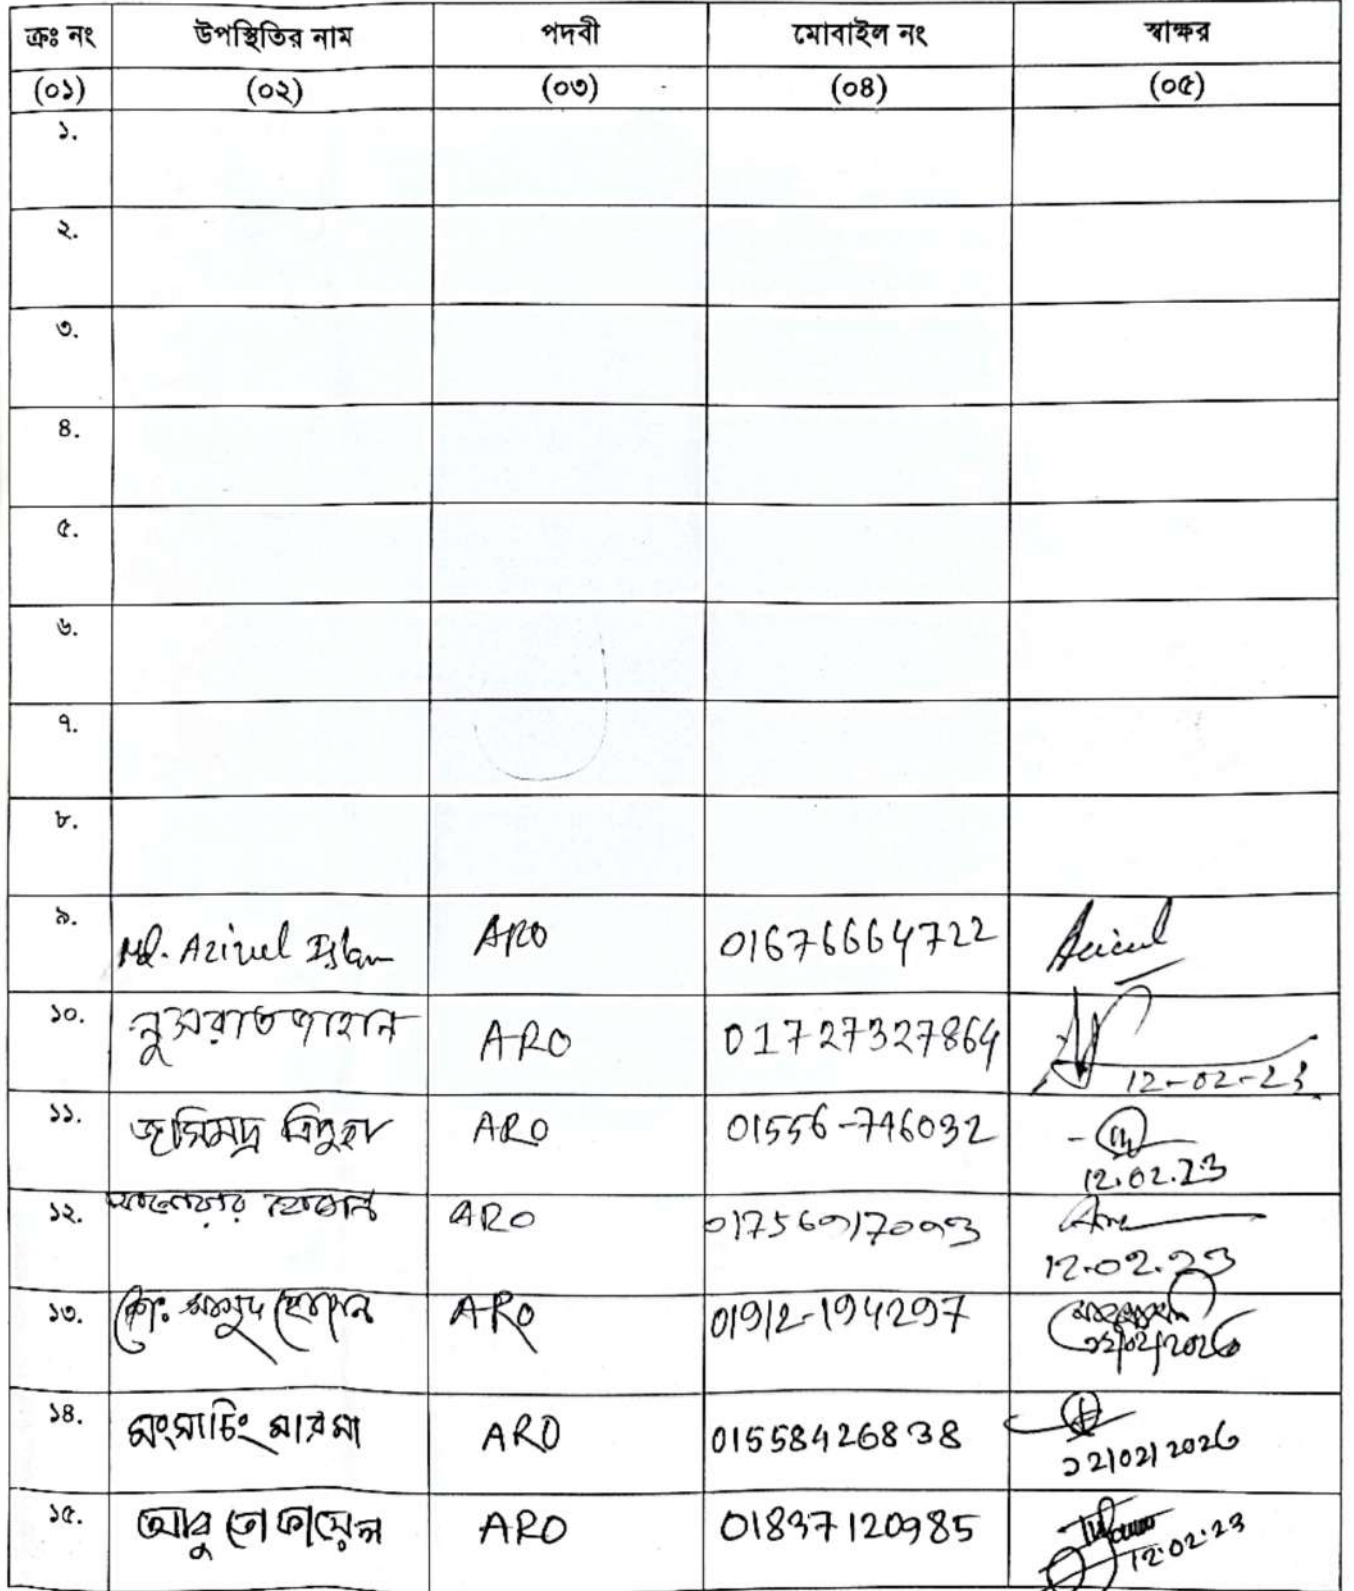 ক্রঃ নং উপস্থিতির নাম পদবী মোবাইল নং স্বাক্ষর
(০১) (০২) (০৩) (০৪) (০৫)
১.
২.
৩.
৪.
৫.
৬.
৭.
৮.
৯. Md. Azizul Islam ARO 01676664722 Azizul
১০. নুসরাত জাহান ARO 01727327864
12-02-23
১১. ত্রিপুরা ARO 01556-746032
12.02.23
১২. ARO
12.02.23
১৩. মোঃ মাসুদ হোসেন ARO 01912-194297
১২/02/2026
১৪. মংসাচিং মারমা ARO 01558426838
১২/02/2026
১৫. আবু তোফায়েল ARO 01837120985
12.02.23